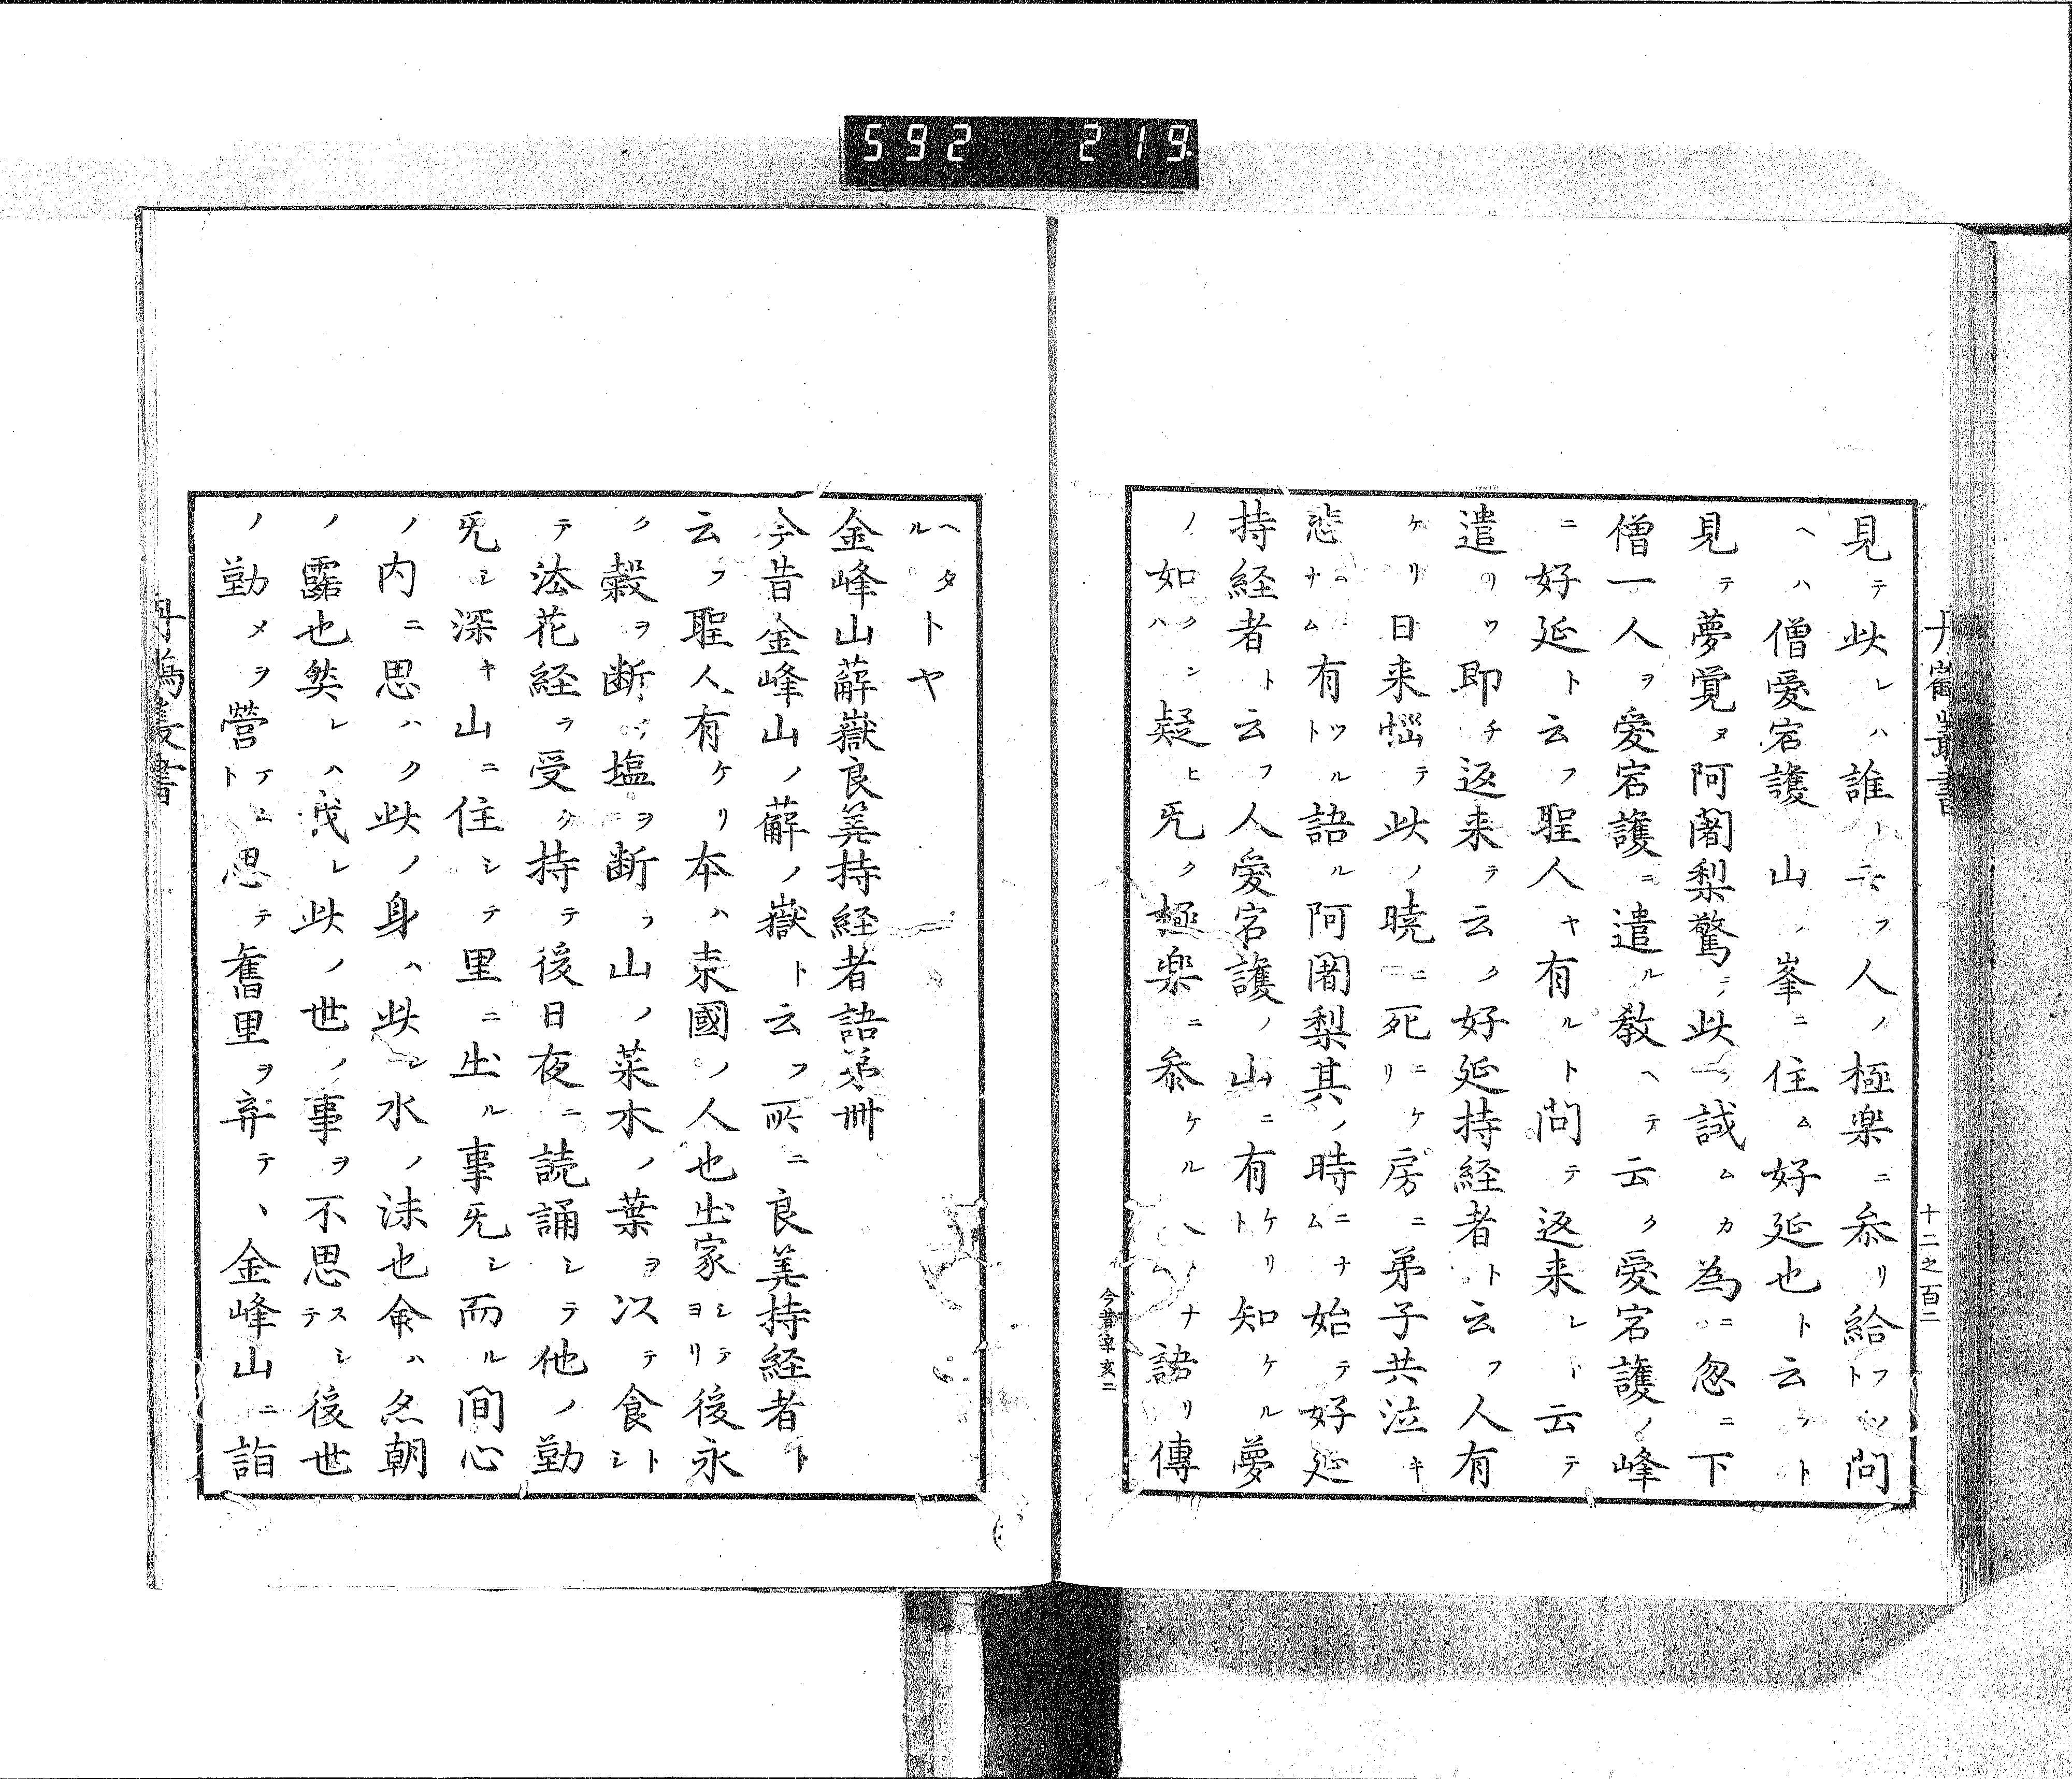 592 219
丹鶴叢書
十二之百二
見テ此レハ誰ト云フ人ノ極楽ニ參リ給フトソ問
ヘハ僧愛宕護山ノ峯ニ住ム好延也ト云フト
見テ夢覚ヌ阿闍梨驚テ此ヲ試ムカ為ニ忽ニ下
僧一人ヲ愛宕護ニ遣ル教ヘテ云ク愛宕護ノ峰
ニ好延ト云フ聖人ヤ有ルト問テ返来レト云テ
遣リツ即チ返来テ云ク好延持経者ト云フ人有
ケリ日来悩テ此ノ暁ニ死ニケリ房ニ弟子共泣キ
悲ムナム有ツルト語ル阿闍梨其ノ時ニナム始テ好延
持経者ト云フ人愛宕護ノ山ニ有ケリト知ケル夢
ノ如クンハ疑ヒ旡ク極楽ニ參ケル人トナ語リ傳
今昔辛亥二
ヘタルトヤ
金峰山薜嶽良筭持経者語第卌
今昔金峰山ノ薜ノ嶽ト云フ所ニ良筭持経者ト
云フ聖人有ケリ本ハ東國ノ人也出家シテヨリ後永
ク穀ヲ断チ塩ヲ断ツ山ノ菜木ノ葉ヲ以テ食トシ
テ法花経ヲ受ケ持テ後日夜ニ読誦シテ他ノ勤
旡シ深キ山ニ住シテ里ニ出ル事旡シ而ル間心
ノ内ニ思ハク此ノ身ハ此レ水ノ沫也命ハ亦朝
ノ露也然レハ我レ此ノ世ノ事ヲ不思スシテ後世
ノ勤メヲ營アムト思テ舊里ヲ弃テヽ金峰山ニ詣
丹鶴叢書